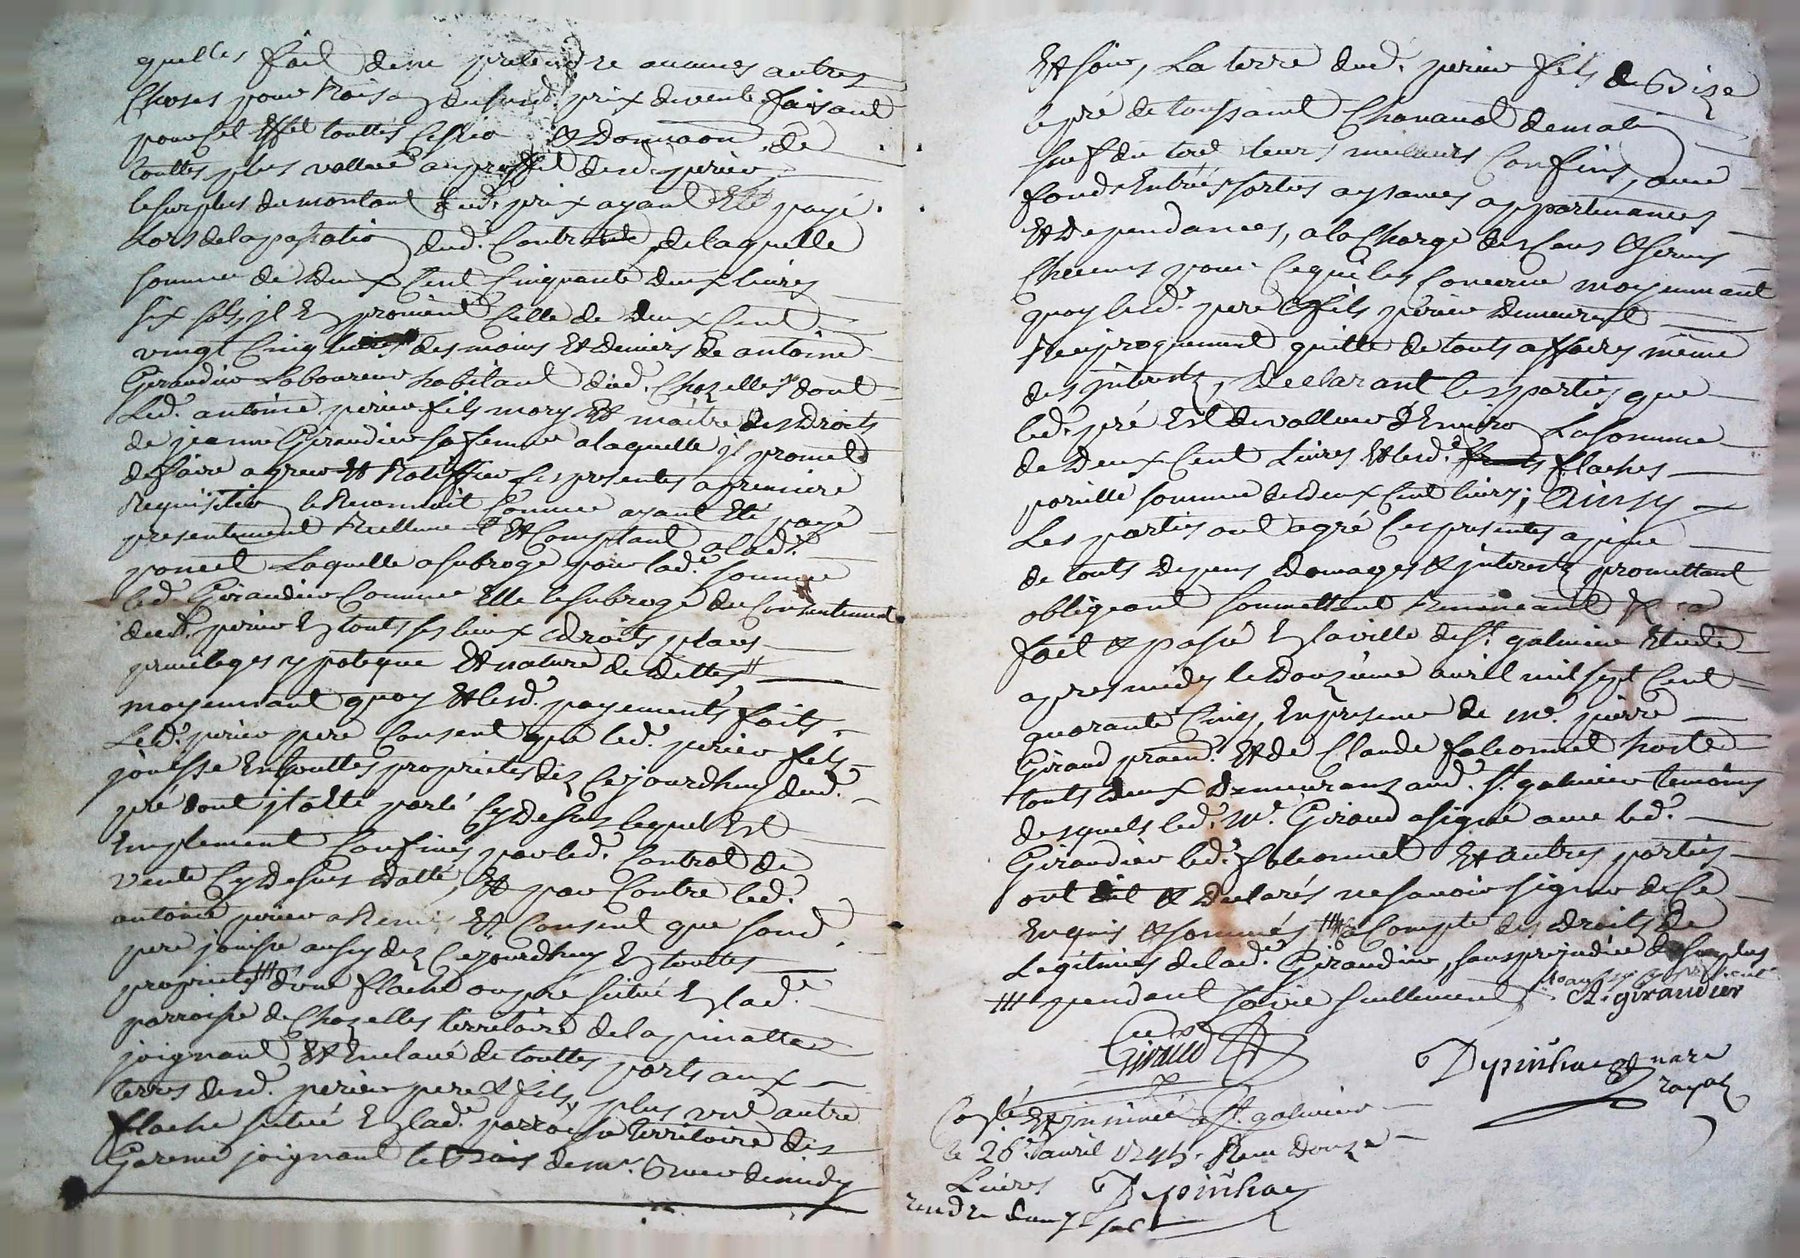 quelles fait de ne pretendre aucunes autres
Choses pour Raison dud. prix de vente faisant
pour cet Effet touttes Cession & Donnaon de
touttes plus vallue au proffit dud. perier
le surplus du montant dud. prix ayant Eté payé
Lors de la passation dud. Contract de laquelle
somme de Deux Cent Cinquante deux livres
six sols, jl En provient Celle de Deux Cent
vingt Cinq livres des mains Et deniers de antoine
Giraudier Laboureur habitant dud. Chazelles dont
Led. antoine perier fils mary Et maitre des Droits
de jeanne Giraudier sa femme a laquelle jl promet
de faire agreer Et Ratiffier les presentes a premiere
Requisition le Reconnoit Comme ayant Eté payé
presentement Reellement Et Comptant a lad.
poncet Laquelle a subrogé pour lad. somme
led. Giraudier Comme Elle le subroge du Consentement
dud. perier En touts ses lieux droits places
privileges ypoteque Et nature de dettes
moyennant quoy Et lesd. payements faits
Led. perier pere Consent que led. perier fils
jouisse En touttes proprietes dez Cejourdhuy dud.
pré dont jl a Eté parlé Cy Dessus lequel Est
Emplement Confiné par led. Contrat de
vente Cy Dessus datté, Et par Contre led.
antoine perier a Remis Et Consent que sond.
pere jouisse aussy dez Cejourdhuy En touttes
proprietés d'une flache ou pre situé En lad.
parroisse de Chazelles territoire de la pinatte
joignant Et Enclavé de touttes parts aux
terres desd. perier pere & fils, plus une autre
flache située En lad. parroisse territoire des
Garenne joignant le Bois de mr. de midy
Et soir, La terre dud. perier fils de Bize
le pré de toussaint Chavanol de matin
sauf du tout leurs meilleurs Confins, avec
fonds Entrées sorties aysances appartenances
Et Dependances, a la Charge des Cens & servis
Chacuns pour Ce qui les Concerne moyennant
quoy lesd. pere & fils perier Demeurent
Reciproquement quitte de touts affaires même
des jnterets, Declarant les parties que
led. pré Est de valleur d'Enviro La somme
de Deux Cent Livres Et lesd. flaches
pareille somme de deux Cent livres; Ainsy
Les parties ont agréé Ces presentes a peine
de touts Depens Domages & jnterests promettant
obligeant soumettant Renonceant &a
fait & passé En la ville de St. galmier Etude
apres midy le Douzieme avril mil sept Cent
quarante Cinq, En presence de me. pierre
Giraud praen. Et de Claude falconnet hoste
touts deux Demeurans aud. St. galmier temoins
desquels led. Me. Giraud a signé avec led.
Giraudier led. falconnet Et autres parties
ont dit & Declarés ne savoir signer de Ce
Enquis & sommés Compte des droits de
Legitimes de lad. Giraudier, sans prejudice du surplus
pendant soire seullement
A. girandier
Giraud
Depinhac Nore
royal
Conlé Et jnsinué a St. galmier
le 26e. avril 1745. Reçu Douze
Livres
Depinhac